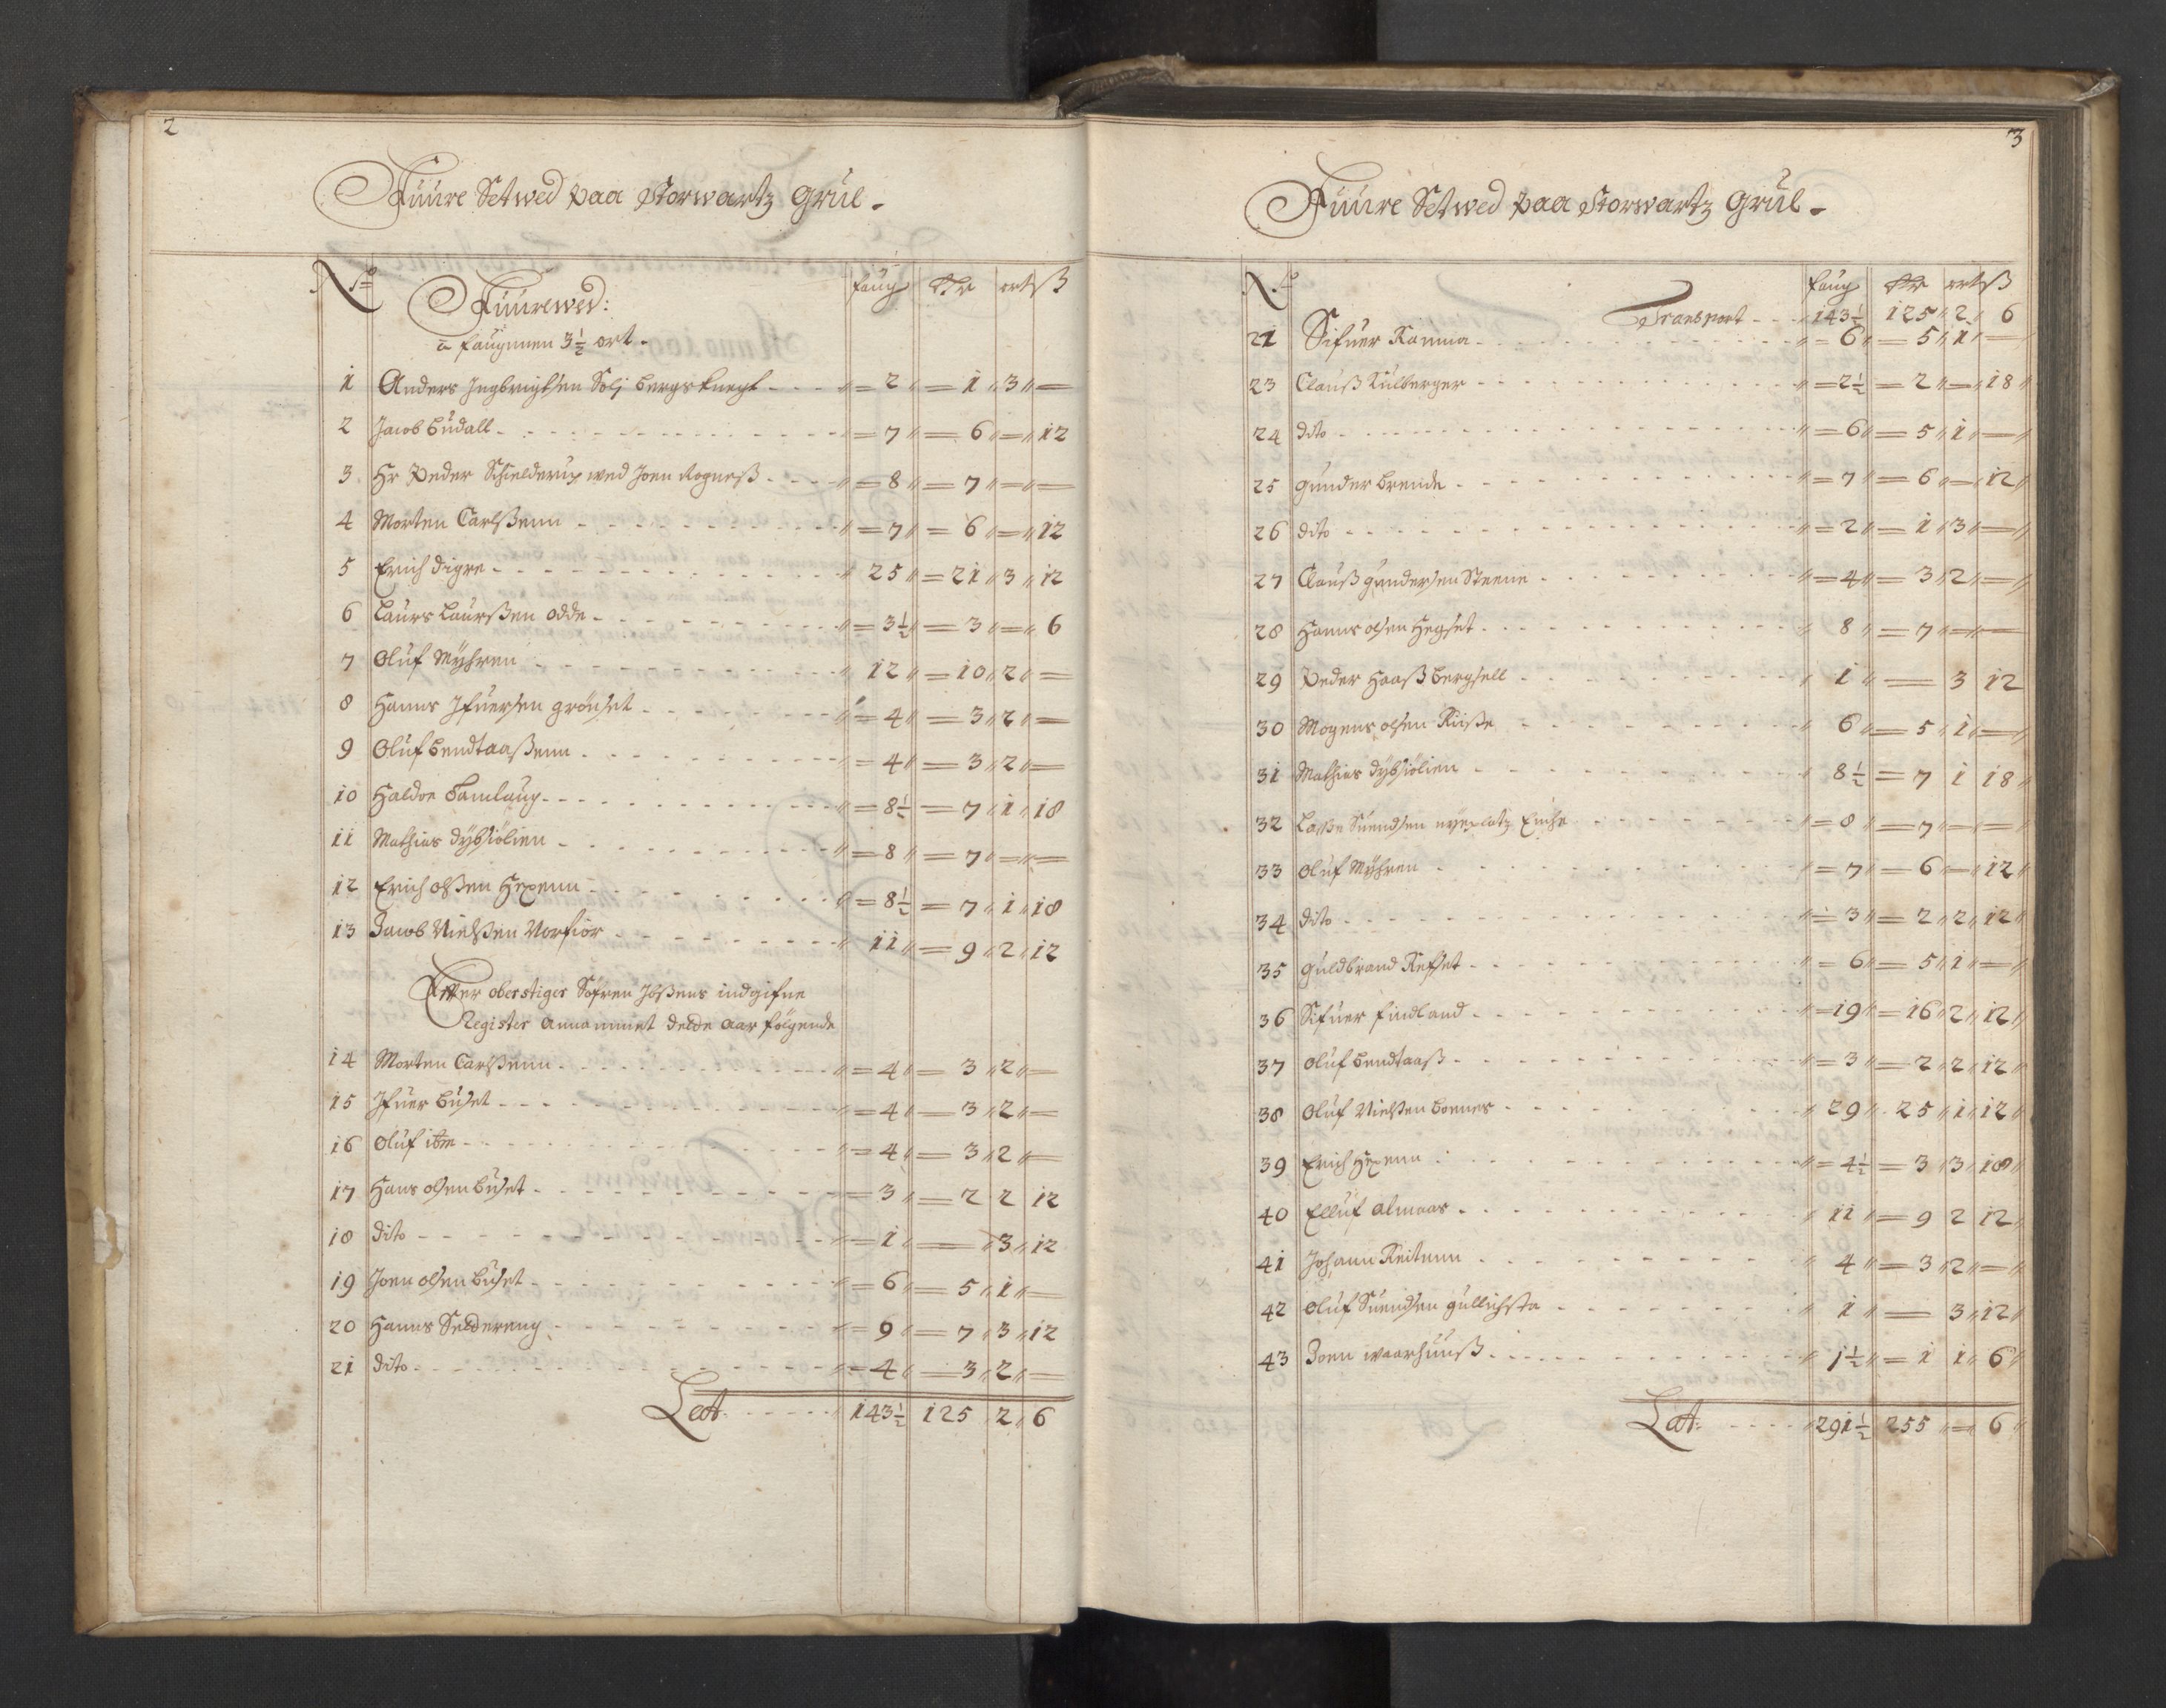 2
Fuure Setwed paa Storwartz Grue.
No faug Rdr ort ß
Fuurewed:
a faugnnen 3½ ort.
1 Anders Ingbrigtsen Solj bergsknegt = 2 = 1 3 =
2 Jacob Budall = 7 = 6 = 12
3 Hr Peder Schielderup wed Joen Rogneß = 8 = 7 = =
4 Morten Carlßenn = 7 = 6 = 12
5 Erich digre 25 = 21 3 12
6 Laurs Laurßen Odde = 3½ = 3 = 6
7 Oluf Mÿhren 12 = 10 2 =
8 Hanns Ifuersen grönset = 4 = 3 2 =
9 Oluf Bendtaaßenn = 4 = 3 2 =
10 Haldoe Tamlaug = 8½ = 7 1 18
11 Mathias dÿbsiölien = 8 = 7 = =
12 Erich olßen Hexenn = 8½ = 7 1 18
13 Jacob Nielßen Norfiör 11 = 9 2 12
Efter oberstiger Sofren Ibßens indgifne
Register annammet dette aar fölgende
14 Morten Carlßenn = 4 = 3 2 =
15 Ifuer Buset = 4 = 3 2 =
16 Oluf itm = 4 = 3 2 =
17 Hans olsen Buset = 3 = 2 2 12
18 dito = 1 = 3 12
19 Joen olsen Buset = 6 = 5 1 =
20 Hanns Seldereng = 9 = 7 3 12
21 dito = 4 = 3 2 =
Lat 143½ 125 2 6
3
Fuure Setwed paa Storwartz Grue.
No faug Rdr ort ß
Transport 143½ 125 2 6
22 Sifuer Ramma = 6 = 5 1 =
23 Clauß Kulberger = 2½ = 2 = 18
24 dito = 6 = 5 1 =
25 gunder Brende = 7 = 6 = 12
26 dito = 2 = 1 3 =
27 Clauß gundersen Steene = 4 = 3 2 =
28 Hanns olsen Hegset 8 = 7 = =
29 Peder Haaß Bergsell 1 = 3 12
30 Mogens olsen Riiße 6 = 5 1 =
31 Mathias dÿbsiölien 8½ = 7 1 18
32 Laße Suendsen = 8 = 7 = =
33 Oluf Mÿhren = 7 = 6 = 12
34 dito = 3 = 2 2 12
35 guldbrand Refset = 6 = 5 1 =
36 Sifuer findland = 19 = 16 2 12
37 Oluf Bendtaaß = 3 = 2 2 12
38 Oluf Nielßen Boenes 29 25 1 12
39 Erich Hexenn = 4½ = 3 3 18
40 Elluf Almaas 11 = 9 2 12
41 Johann Reitann 4 = 3 2 =
42 Oluf Suendsen gullichsta 1 = 3 12
43 Joen waarhuuß 1½ = 1 1 6
Lat: 291½ 255 = 6